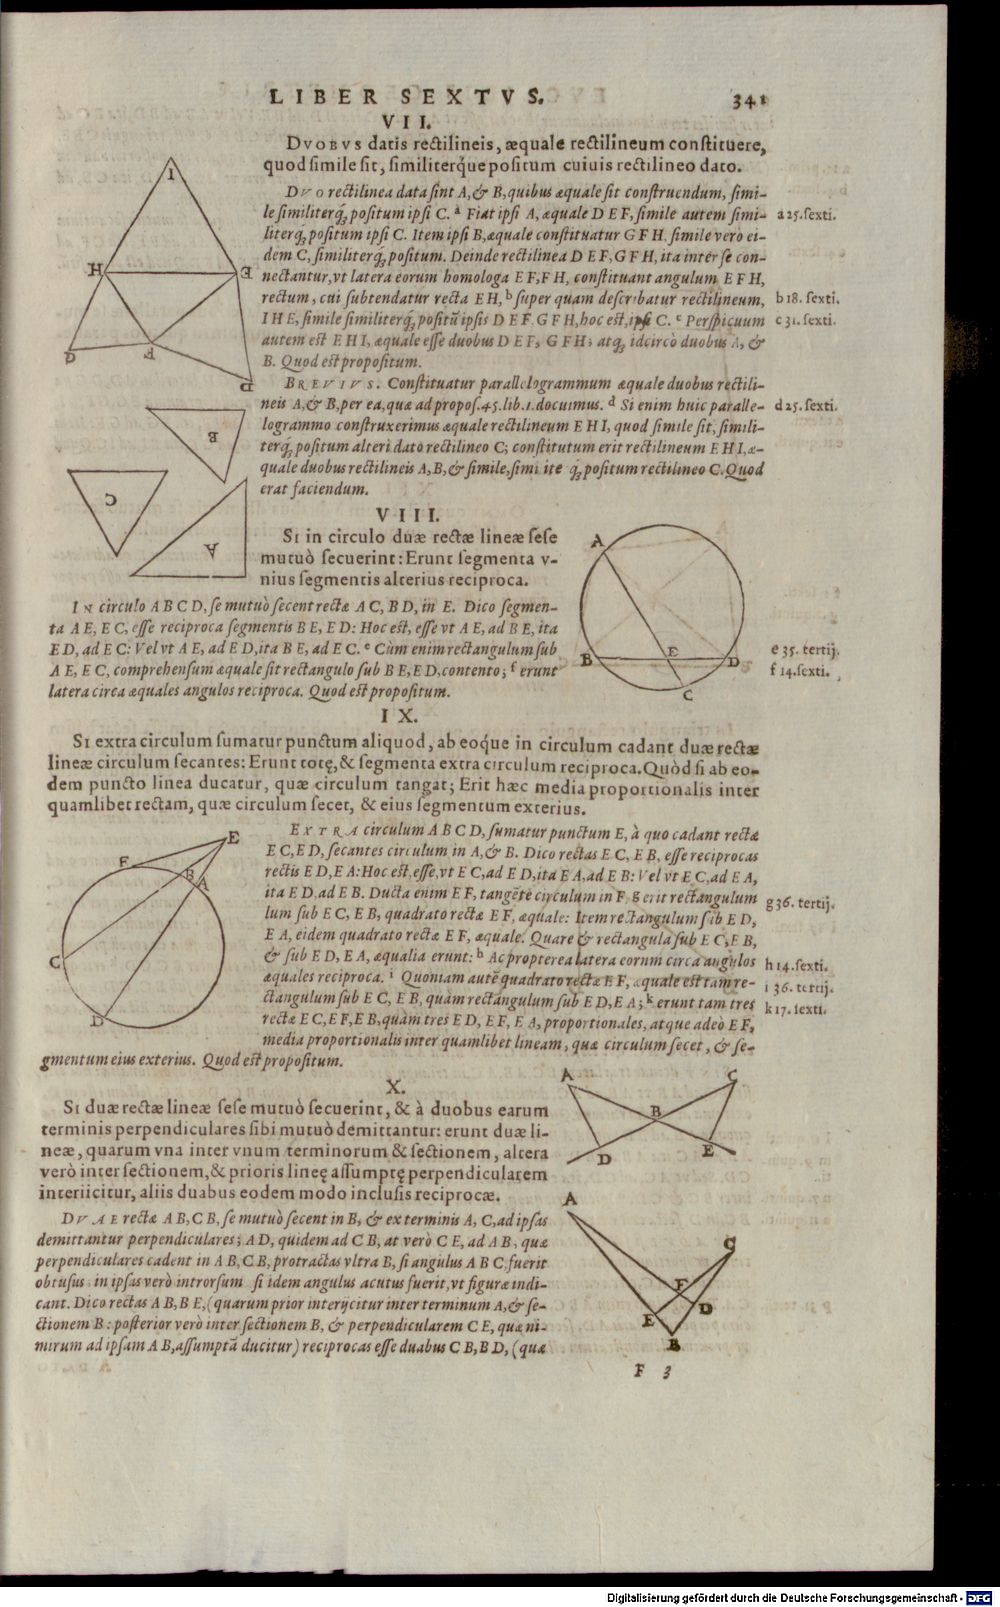 LIBER SEXTVS. 341
VII.
DVOBVS datis rectilineis, æquale rectilineum constituere,
quod simile sit, similiterq́ue positum cuiuis rectilineo dato.
DVO rectilinea data sint A, & B, quibus æquale sit construendum, simi-
le similiterq́; positum ipsi C. ᵃ Fiat ipsi A, æquale D E F, simile autem simi- a 25. sexti.
literq́; positum ipsi C. Item ipsi B, æquale constituatur G F H, simile verò ei-
dem C, similiterq́; positum. Deinde rectilinea D E F, G F H, ita inter se con-
nectantur, vt latera eorum homologa E F, F H, constituant angulum E F H,
rectum, cui subtendatur recta E H, ᵇ super quam describatur rectilineum, b 18. sexti.
I H E, simile similiterq́; positũ ipsis D E F. G F H, hoc est, ipsi C. ᶜ Perspicuum c 31. sexti.
autem est E H I, æquale esse duobus D E F, G F H; atq́; idcircò duobus A, &
B. Quod est propositum.
BREVIVS. Constituatur parallelogrammum æquale duobus rectili-
neis A, & B, per ea, quæ ad propos. 45. lib. 1. docuimus. ᵈ Si enim huic paralle- d 25. sexti.
logrammo construxerimus æquale rectilineum E H I, quod simile sit, simili-
terq́; positum alteri dato rectilineo C; constitutum erit rectilineum E H I, æ-
quale duobus rectilineis A, B, & simile, simi ite q́; positum rectilineo C. Quod
erat faciendum.
I
H E
F
G
D
B
C
A
VIII.
SI in circulo duæ rectæ lineæ sese
mutuò secuerint: Erunt segmenta v-
nius segmentis alterius reciproca.
IN circulo A B C D, se mutuò secent rectæ A C, B D, in E. Dico segmen-
ta A E, E C, esse reciproca segmentis B E, E D: Hoc est, esse vt A E, ad B E, ita
E D, ad E C: Vel vt A E, ad E D, ita B E, ad E C. ᵉ Cùm enim rectangulum sub e 35. tertij.
A E, E C, comprehensum æquale sit rectangulo sub B E, E D, contento; ᶠ erunt f 14. sexti.
latera circa æquales angulos reciproca. Quod est propositum.
A
B E D
C
IX.
SI extra circulum sumatur punctum aliquod, ab eoque in circulum cadant duæ rectæ
lineæ circulum secantes: Erunt totę, & segmenta extra circulum reciproca. Quòd si ab eo-
dem puncto linea ducatur, quæ circulum tangat; Erit hæc media proportionalis inter
quamlibet rectam, quæ circulum secet, & eius segmentum exterius.
EXTRA circulum A B C D, sumatur punctum E, à quo cadant rectæ
E C, E D, secantes circulum in A, & B. Dico rectas E C, E B, esse reciprocas
rectis E D, E A: Hoc est, esse, vt E C, ad E D, ita E A, ad E B: Vel vt E C, ad E A,
ita E D, ad E B. Ducta enim E F, tangẽte circulum in F, ᵍ erit rectangulum g 36. tertij.
lum sub E C, E B, quadrato rectæ E F, æquale: Item rectangulum sub E D,
E A, eidem quadrato rectæ E F, æquale. Quare & rectangula sub E C, E B,
& sub E D, E A, æqualia erunt: ʰ Ac propterea latera eorum circa angulos h 14. sexti.
æquales reciproca. ⁱ Quoniam autẽ quadrato rectæ E F, æquale est tam re- i 36. tertij.
ctangulum sub E C, E B, quàm rectangulum sub E D, E A; ᵏ erunt tam tres k 17. sexti.
rectæ E C, E F, E B, quàm tres E D, E F, E A, proportionales, atque adeò E F,
media proportionalis inter quamlibet lineam, quæ circulum secet, & se-
gmentum eius exterius. Quod est propositum.
E
F
B
A
C
D
X.
SI duæ rectæ lineæ sese mutuò secuerint, & à duobus earum
terminis perpendiculares sibi mutuò demittantur: erunt duæ li-
neæ, quarum vna inter vnum terminorum & sectionem, altera
verò inter sectionem, & prioris lineę assumptę perpendicularem
interiicitur, aliis duabus eodem modo inclusis reciprocæ.
DVAE rectæ A B, C B, se mutuò secent in B, & ex terminis A, C, ad ipsas
demittantur perpendiculares; A D, quidem ad C B, at verò C E, ad A B, quæ
perpendiculares cadent in A B, C B, protractas vltra B, si angulus A B C, fuerit
obtusus: in ipsas verò introrsum si idem angulus acutus fuerit, vt figuræ indi-
cant. Dico rectas A B, B E, (quarum prior interijcitur inter terminum A, & se-
ctionem B: posterior verò inter sectionem B, & perpendicularem C E, quæ ni-
mirum ad ipsam A B, assumptã ducitur) reciprocas esse duabus C B, B D, (quæ
A C
B
D E
A
C
F
D
E
B
F 3
Digitalisierung gefördert durch die Deutsche Forschungsgemeinschaft - DFG